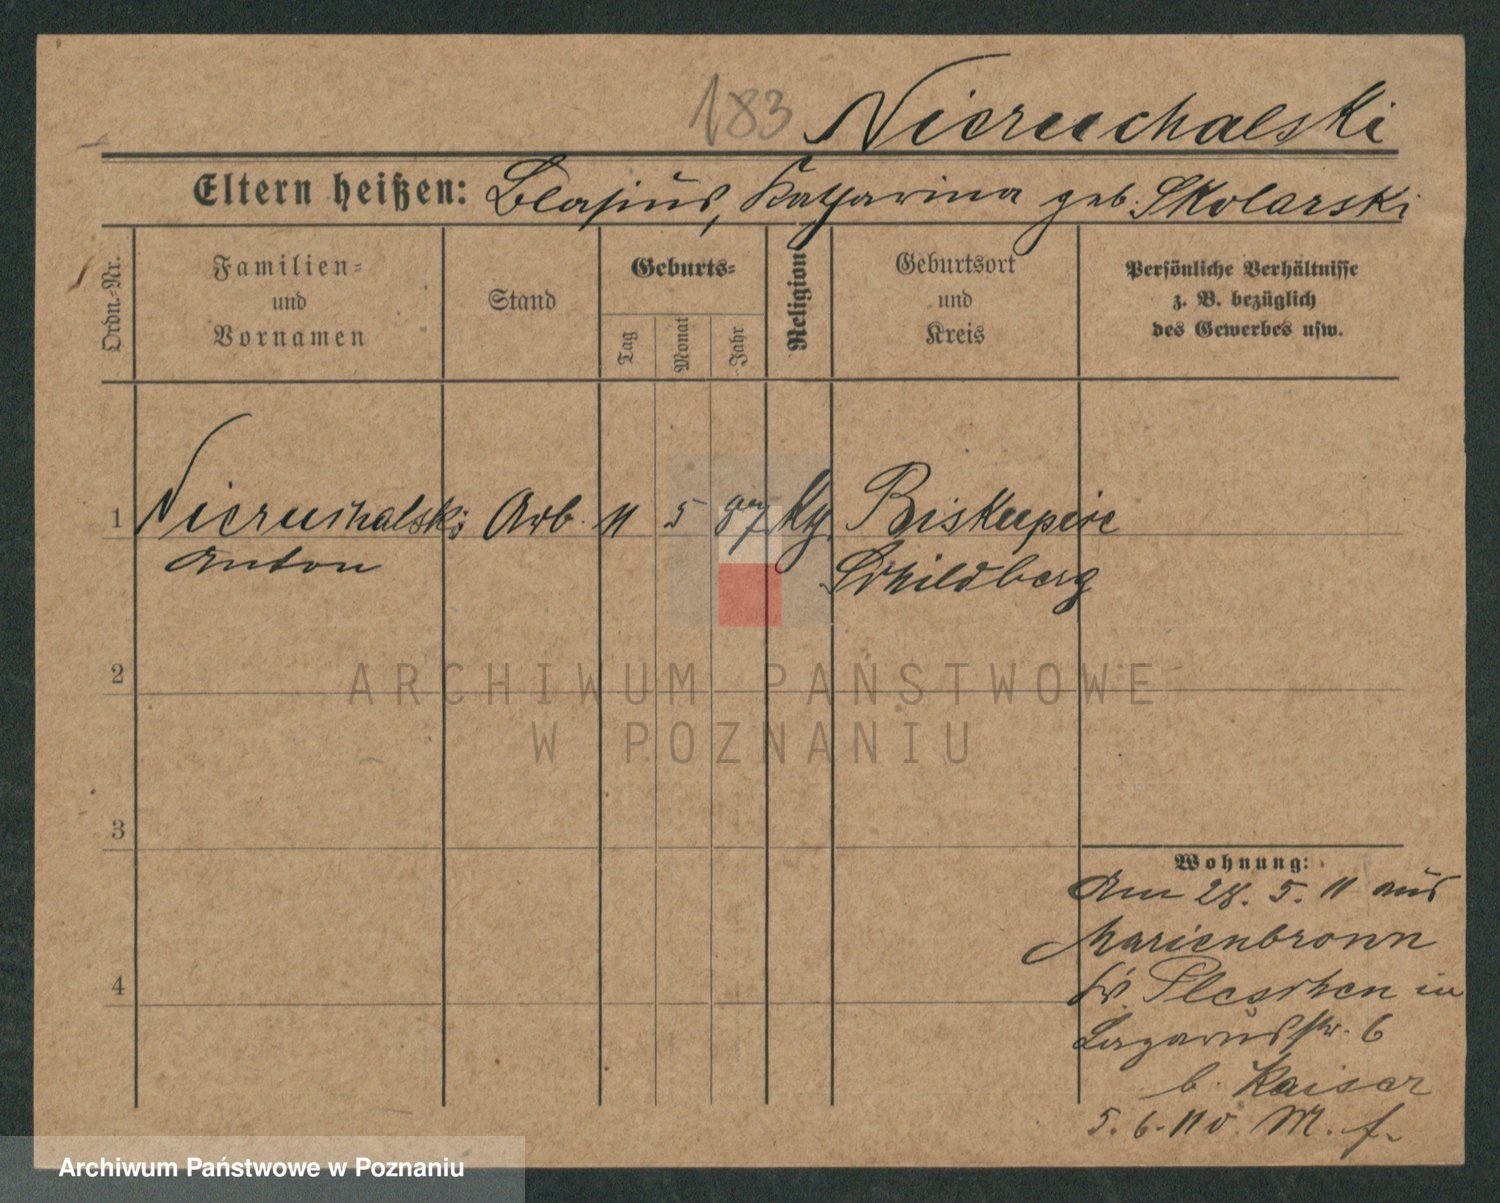 183 Nieruchalski
Eltern heißen: Blasius, Katharina geb. Skolarski
Ordn.-Nr.
Familien-
und
Vornamen
Stand
Geburts-
Tag
Monat
Jahr
Religion
Geburtsort
und
Kreis
Persönliche Verhältnisse
z. B. bezüglich
des Gewerbes usw.
1 Nieruchalski Arb. 11 5 87 Biskupice
Anton Schildberg
2
3
4
Wohnung:
Am 28. 5. 11 aus
Marienbronn
Kr. Pleschen in
Lazarusstr. 6
b. Kaiser
5. 6. 11 v. M. f.
ARCHIWUM PAŃSTWOWE
W POZNANIU
Archiwum Państwowe w Poznaniu